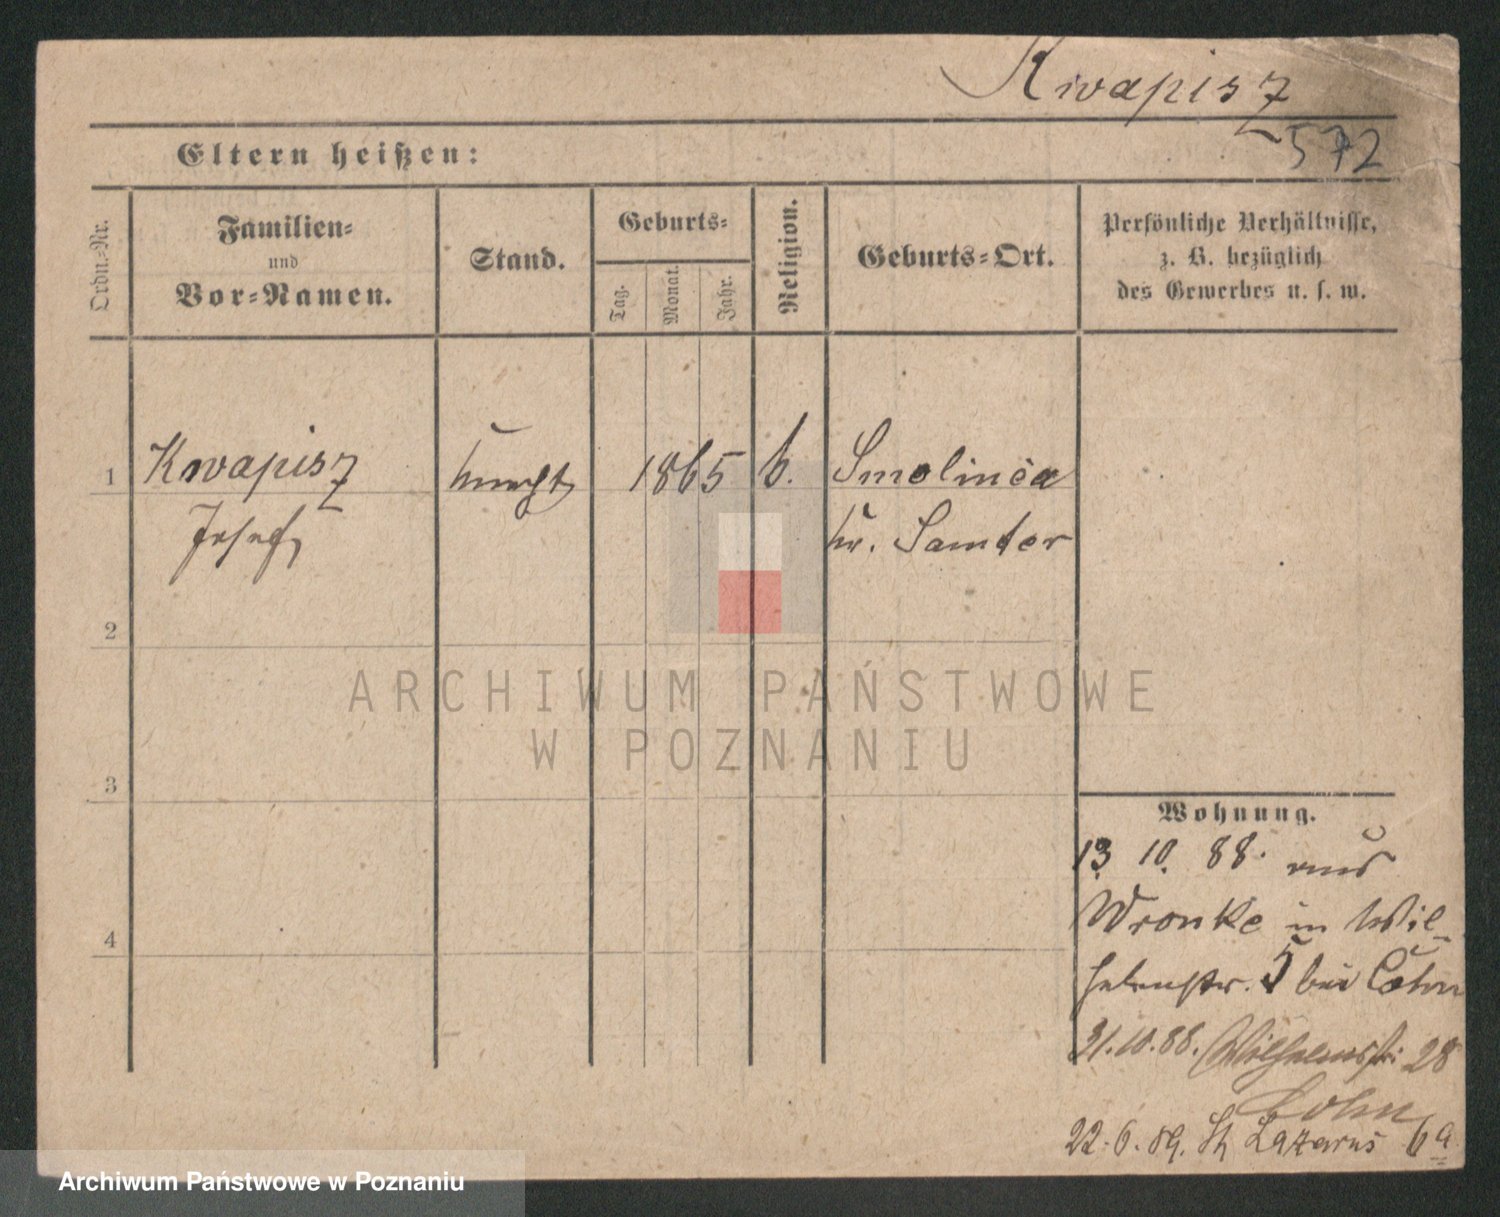 Kwapisz
572
Eltern heißen:
Ordn.-Nr.
Familien-
und
Vor-Namen.
Stand.
Geburts-
Tag.
Monat.
Jahr.
Religion.
Geburts-Ort.
Persönliche Verhältnisse,
z. B. bezüglich
des Gewerbes u. s. w.
1 Kwapisz Knecht 1865 k. Smolinca
Josef Kr. Samter
2
3
4
Wohnung.
13. 10. 88. aus
Wronke in Wil-
helmstr. 5 bei Cohn
31.10.88. Wilhelmstr. 28
Cohn
22.6.89. St Lazarus 6a
ARCHIWUM PAŃSTWOWE
W POZNANIU
Archiwum Państwowe w Poznaniu